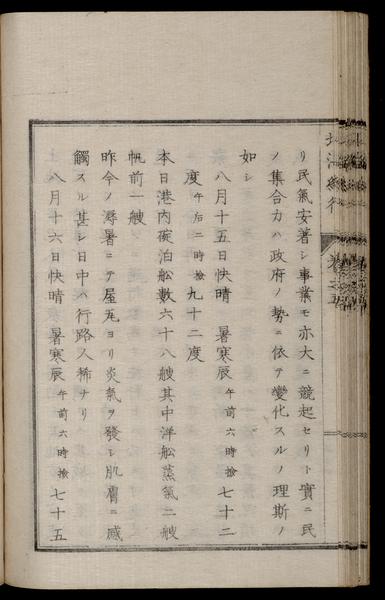 リ民氣安著シ事業モ亦大ニ競起セリト實ニ民
ノ集合力ハ政府ノ勢ニ依テ變化スルノ理斯ノ
如シ
八月十五日快晴 暑寒辰 午前六時撿 七十二
度 午后二時撿 九十二度
本日港內碇泊舩數六十八艘其中洋舩蒸氣二艘
帆前一艘
昨今ノ溽暑ニテ屋瓦ヨリ炎氣ヲ發シ肌膚ニ感
觸スル甚シ日中ハ行路人稀ナリ
八月十六日快晴 暑寒辰 午前六時撿 七十五